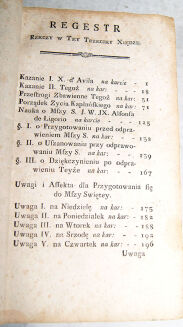 REGESTR
RZECZY W TEY TRZECIEY XIĘDZE.
Kazanie I. X. d'Avila na karcie - 1
Kazanie II. Tegoż - - - - 18
Przestrogi Zbawienne Tegoż na kar: 51
Porządek Życia Kapłańskiego na kar: 71
Nauka o Mszy S. J. W. JX. Alfonsa
de Ligorio na karcie - - - 125
§. I. o Przygotowaniu przed odpra-
wieniem Mszy S. na kar: - - 152
§. II. o Uszanowaniu przy odprawo-
waniu Mszy S. na kar: - - 159
§. III. o Dziękczynieniu po odpra-
wieniu Teyże na kar: - - 167
Uwagi i Affekta dla Przygotowania się
do Mszy Swiętey.
Uwaga I. na Niedzielę na kar: - 175
Uwaga II. na Poniedziałek na kar: - 182
Uwaga III. na Wtorek na kar: - 188
Uwaga IV. na Srzodę na kar: - 192
Uwaga V. na Czwartek na kar: - 196
Uwaga